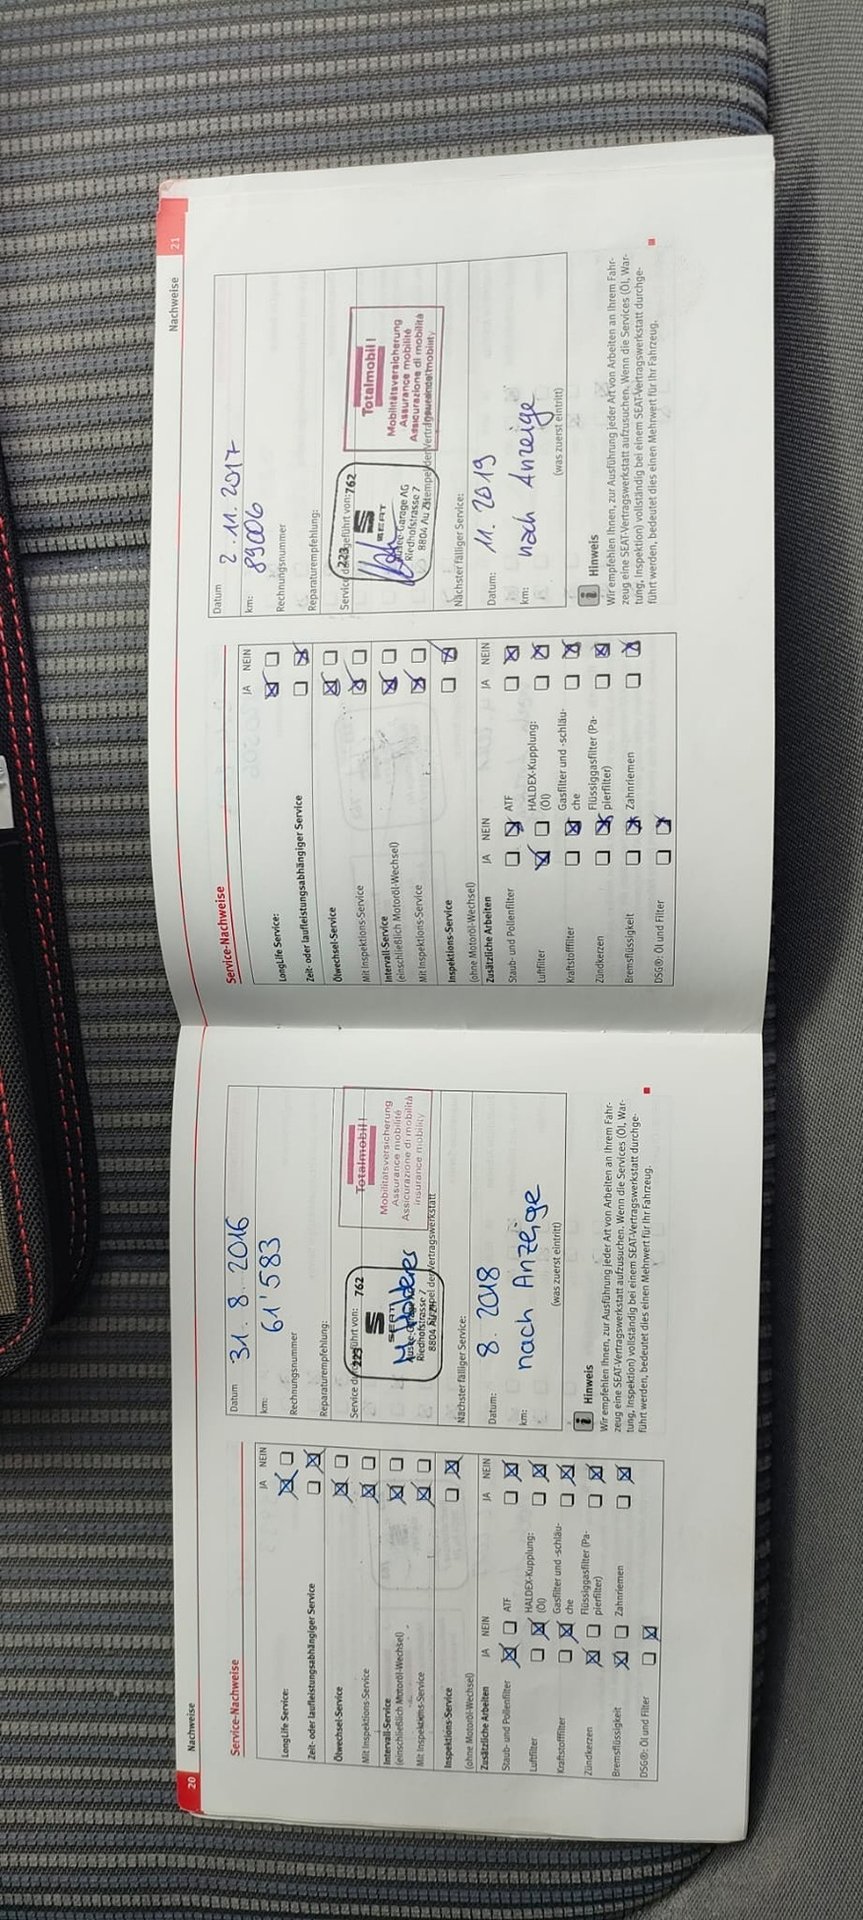 20 Nachweise
Service-Nachweise
JA NEIN
LongLife Service: ☒ ☐
Zeit- oder laufleistungsabhängiger Service ☐ ☒
Ölwechsel-Service ☒ ☐
Mit Inspektions-Service ☒ ☐
Intervall-Service
(einschließlich Motoröl-Wechsel) ☒ ☐
Mit Inspektions-Service ☒ ☐
Inspektions-Service
(ohne Motoröl-Wechsel) ☐ ☒
Zusätzliche Arbeiten JA NEIN JA NEIN
Staub- und Pollenfilter ☒ ☐ ATF ☐ ☒
Luftfilter ☐ ☒ HALDEX-Kupplung: (Öl) ☐ ☒
Kraftstofffilter ☐ ☒ Gasfilter und -schläuche ☐ ☒
Zündkerzen ☒ ☐ Flüssiggasfilter (Papierfilter) ☐ ☒
Bremsflüssigkeit ☒ ☐ Zahnriemen ☐ ☒
DSG®: Öl und Filter ☐ ☒
Datum 31. 8. 2016
km: 61'583
Rechnungsnummer
Reparaturempfehlung:
762
SEAT
Riedhofstrasse 7
Totalmobil!
Mobilitätsversicherung
Assurance mobilité
Assicurazione di mobilità
insurance mobility
Nächster fälliger Service:
Datum: 8. 2018
km: nach Anzeige
(was zuerst eintritt)
Hinweis
Wir empfehlen Ihnen, zur Ausführung jeder Art von Arbeiten an Ihrem Fahr-
zeug eine SEAT-Vertragswerkstatt aufzusuchen. Wenn die Services (Öl, War-
tung, Inspektion) vollständig bei einem SEAT-Vertragswerkstatt durchge-
führt werden, bedeutet dies einen Mehrwert für Ihr Fahrzeug.
Nachweise 21
Service-Nachweise
JA NEIN
LongLife Service: ☒ ☐
Zeit- oder laufleistungsabhängiger Service ☐ ☒
Ölwechsel-Service ☒ ☐
Mit Inspektions-Service ☒ ☐
Intervall-Service
(einschließlich Motoröl-Wechsel) ☒ ☐
Mit Inspektions-Service ☒ ☐
Inspektions-Service
(ohne Motoröl-Wechsel) ☐ ☒
Zusätzliche Arbeiten JA NEIN JA NEIN
Staub- und Pollenfilter ☐ ☒ ATF ☐ ☒
Luftfilter ☒ ☐ HALDEX-Kupplung: (Öl) ☐ ☒
Kraftstofffilter ☐ ☒ Gasfilter und -schläuche ☐ ☒
Zündkerzen ☐ ☒ Flüssiggasfilter (Papierfilter) ☐ ☒
Bremsflüssigkeit ☐ ☒ Zahnriemen ☐ ☒
DSG®: Öl und Filter ☐ ☒
Datum 2. 11. 2017
km: 89006
Rechnungsnummer
Reparaturempfehlung:
223 762
SEAT
Riedhofstrasse 7
Totalmobil!
Mobilitätsversicherung
Assurance mobilité
Assicurazione di mobilità
Nächster fälliger Service:
Datum: 11. 2019
km: nach Anzeige
(was zuerst eintritt)
Hinweis
Wir empfehlen Ihnen, zur Ausführung jeder Art von Arbeiten an Ihrem Fahr-
zeug eine SEAT-Vertragswerkstatt aufzusuchen. Wenn die Services (Öl, War-
tung, Inspektion) vollständig bei einem SEAT-Vertragswerkstatt durchge-
führt werden, bedeutet dies einen Mehrwert für Ihr Fahrzeug.